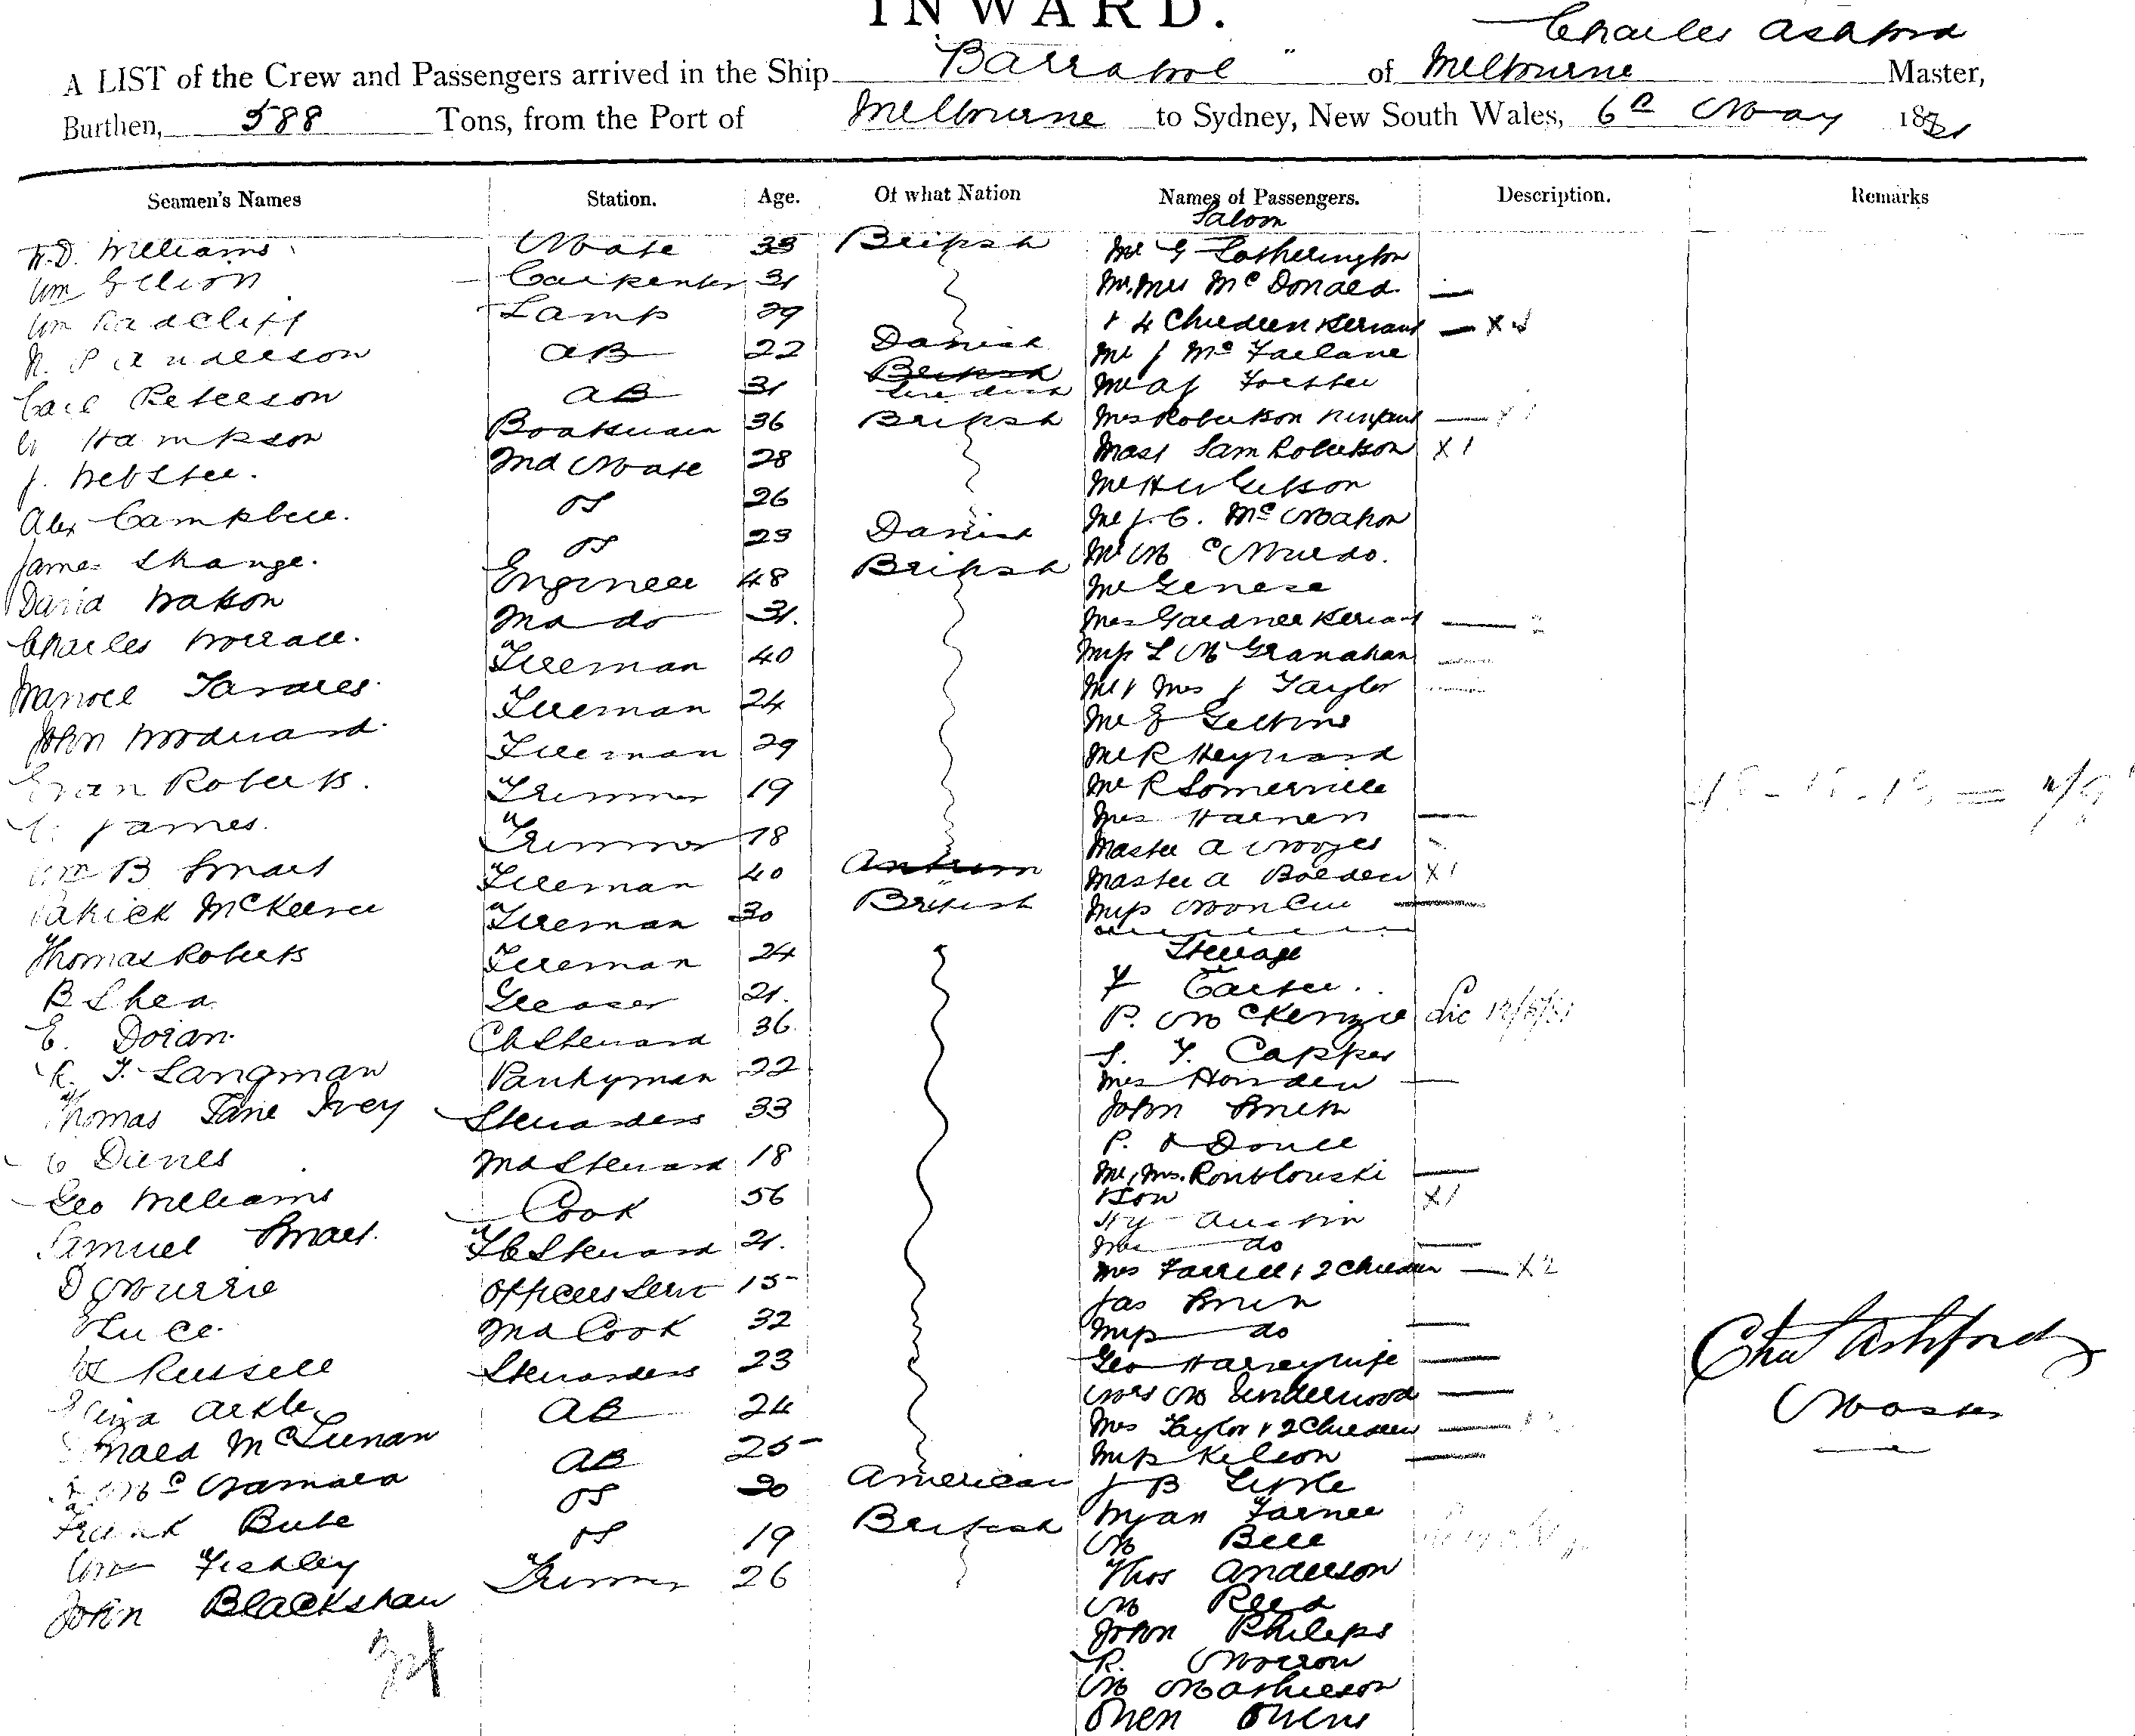 INWARD.
Charles Ashford
A LIST of the Crew and Passengers arrived in the Ship Barrabool " of Melbourne Master,
Burthen, 588 Tons, from the Port of Melbourne to Sydney, New South Wales, 6th May 1881
Seamen's Names Station. Age. Of what Nation Names of Passengers. Description. Remarks
Saloon
W.D. Williams Mate 33 British Mr G Fotherington
Wm Carpenter 31 Mr, Mrs McDonald —
Wm Radcliff Lamp 29 & 4 Children & Servant — x 4
Anderson AB 22 Danish Mr J McFarlane
Carl Peterson AB 31 British Swedish Mr A J Forster
Hampson Boatswain 36 British Mrs Robertson & Infant — x 1
J. Webster. 2nd Mate 28 Mast Sam Robertson x 1
Alex Campbell. OS 26 Mr H W Gibson
James Strange. OS 23 Danish Mr J. C. McMahon
David Watson Engineer 48 British Mr McMurdo.
Charles Worrall. 2nd do 31. Mr Genese
Manoel Tavares Fireman 40 Mrs Gardner & Servant —
John Woodward Fireman 24 Miss L McGranahan
Evan Roberts. Fireman 29 Mr & Mrs J Taylor
James. Trimmer 19 Mr E Gibbins
Wm B Smart Trimmer 18 Mr R Heyward
Patrick Fireman 40 Mr R Somerville
Thomas Roberts Fireman 30 British Mrs Harnen —
B Shea Fireman 24 Master A Moyes
E. Doran. Greaser 21. Master A Bolden x 1
R. T. Langman Ch Steward 36. Miss —
Thomas Lane Ivey Pantryman 22 Steerage
C Davies Stewardess 33 F Carter.
Geo Williams 2nd Steward 18 P. McKenzie
Samuel Smart. Cook 56 S. T. Capper
D Murrie F C Steward 21. Mrs Howden —
Luce. Officers Servt 15 John Smith
Russell 2nd Cook 32 P. O Donell
Eliza Arkle Stewardess 23 Mr, Mrs. —
Donald McLennan AB 24 & Son x 1
McNamara AB 25 Hy Austin
Frank Bute OS 20 American Mrs do —
Wm Fishley OS 19 British Mrs Farrell & 2 Children — x 2
John Blackshaw Trimmer 26 Jas Smith
Miss do —
Geo Harvey & wife —
Mrs M Underwood —
Mrs Taylor & 2 Children —
Miss Kelson —
J B Little
Farner
M Bell
Thos Anderson
M Reed
John Philips
R. Morrow
M Mathieson
Owen Owens
Chas Ashford
Master